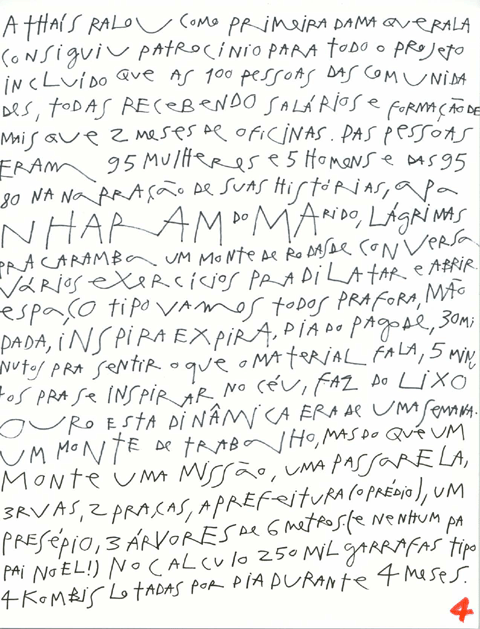 A THAÍS RALOU COMO PRIMEIRA DAMA QUERALA
CONSIGUIU PATROCÍNIO PARA TODO O PROJETO
INCLUÍDO QUE AS 100 PESSOAS DAS COMUNIDA
DES, TODAS RECEBENDO SALÁRIOS e FORMAÇÃO DE
MAIS QUE 2 MESES DE OFICINAS. DAS PESSOAS
ERAM 95 MULHERES e 5 HOMENS e DAS 95
80 NA NARRAÇÃO DE SUAS HISTÓRIAS, APA
NHARAM DO MARIDO, LÁGRIMAS
PRA CARAMBA UM MONTE DE RODAS DE CONVERSA
VÁRIOS EXERCÍCIOS PRA DILATAR e ABRIR
ESPAÇO TIPO VAMOS TODOS PRA FORA, MÃO
DADA, INSPIRA EXPIRA, DIA DO PAGODE, 30 MI
NUTOS PRA SENTIR O QUE O MATERIAL FALA, 5 MINU
TOS PRA SE INSPIRAR NO CÉU, FAZ DO LIXO
OURO ESTA DINÂMICA ERA DE UMA SEMANA.
UM MONTE DE TRABALHO, MAS DO QUE UM
MONTE UMA MISSÃO, UMA PASSARELA,
3 RUAS, 2 PRAÇAS, A PREFEITURA (O PRÉDIO), UM
PRESÉPIO, 3 ÁRVORES DE 6 METROS. (e NENHUM PA
PAI NOEL!) NO CALCULO 250 MIL GARRAFAS TIPO
4 KOMBIS LOTADAS POR DIA DURANTE 4 MESES.
4